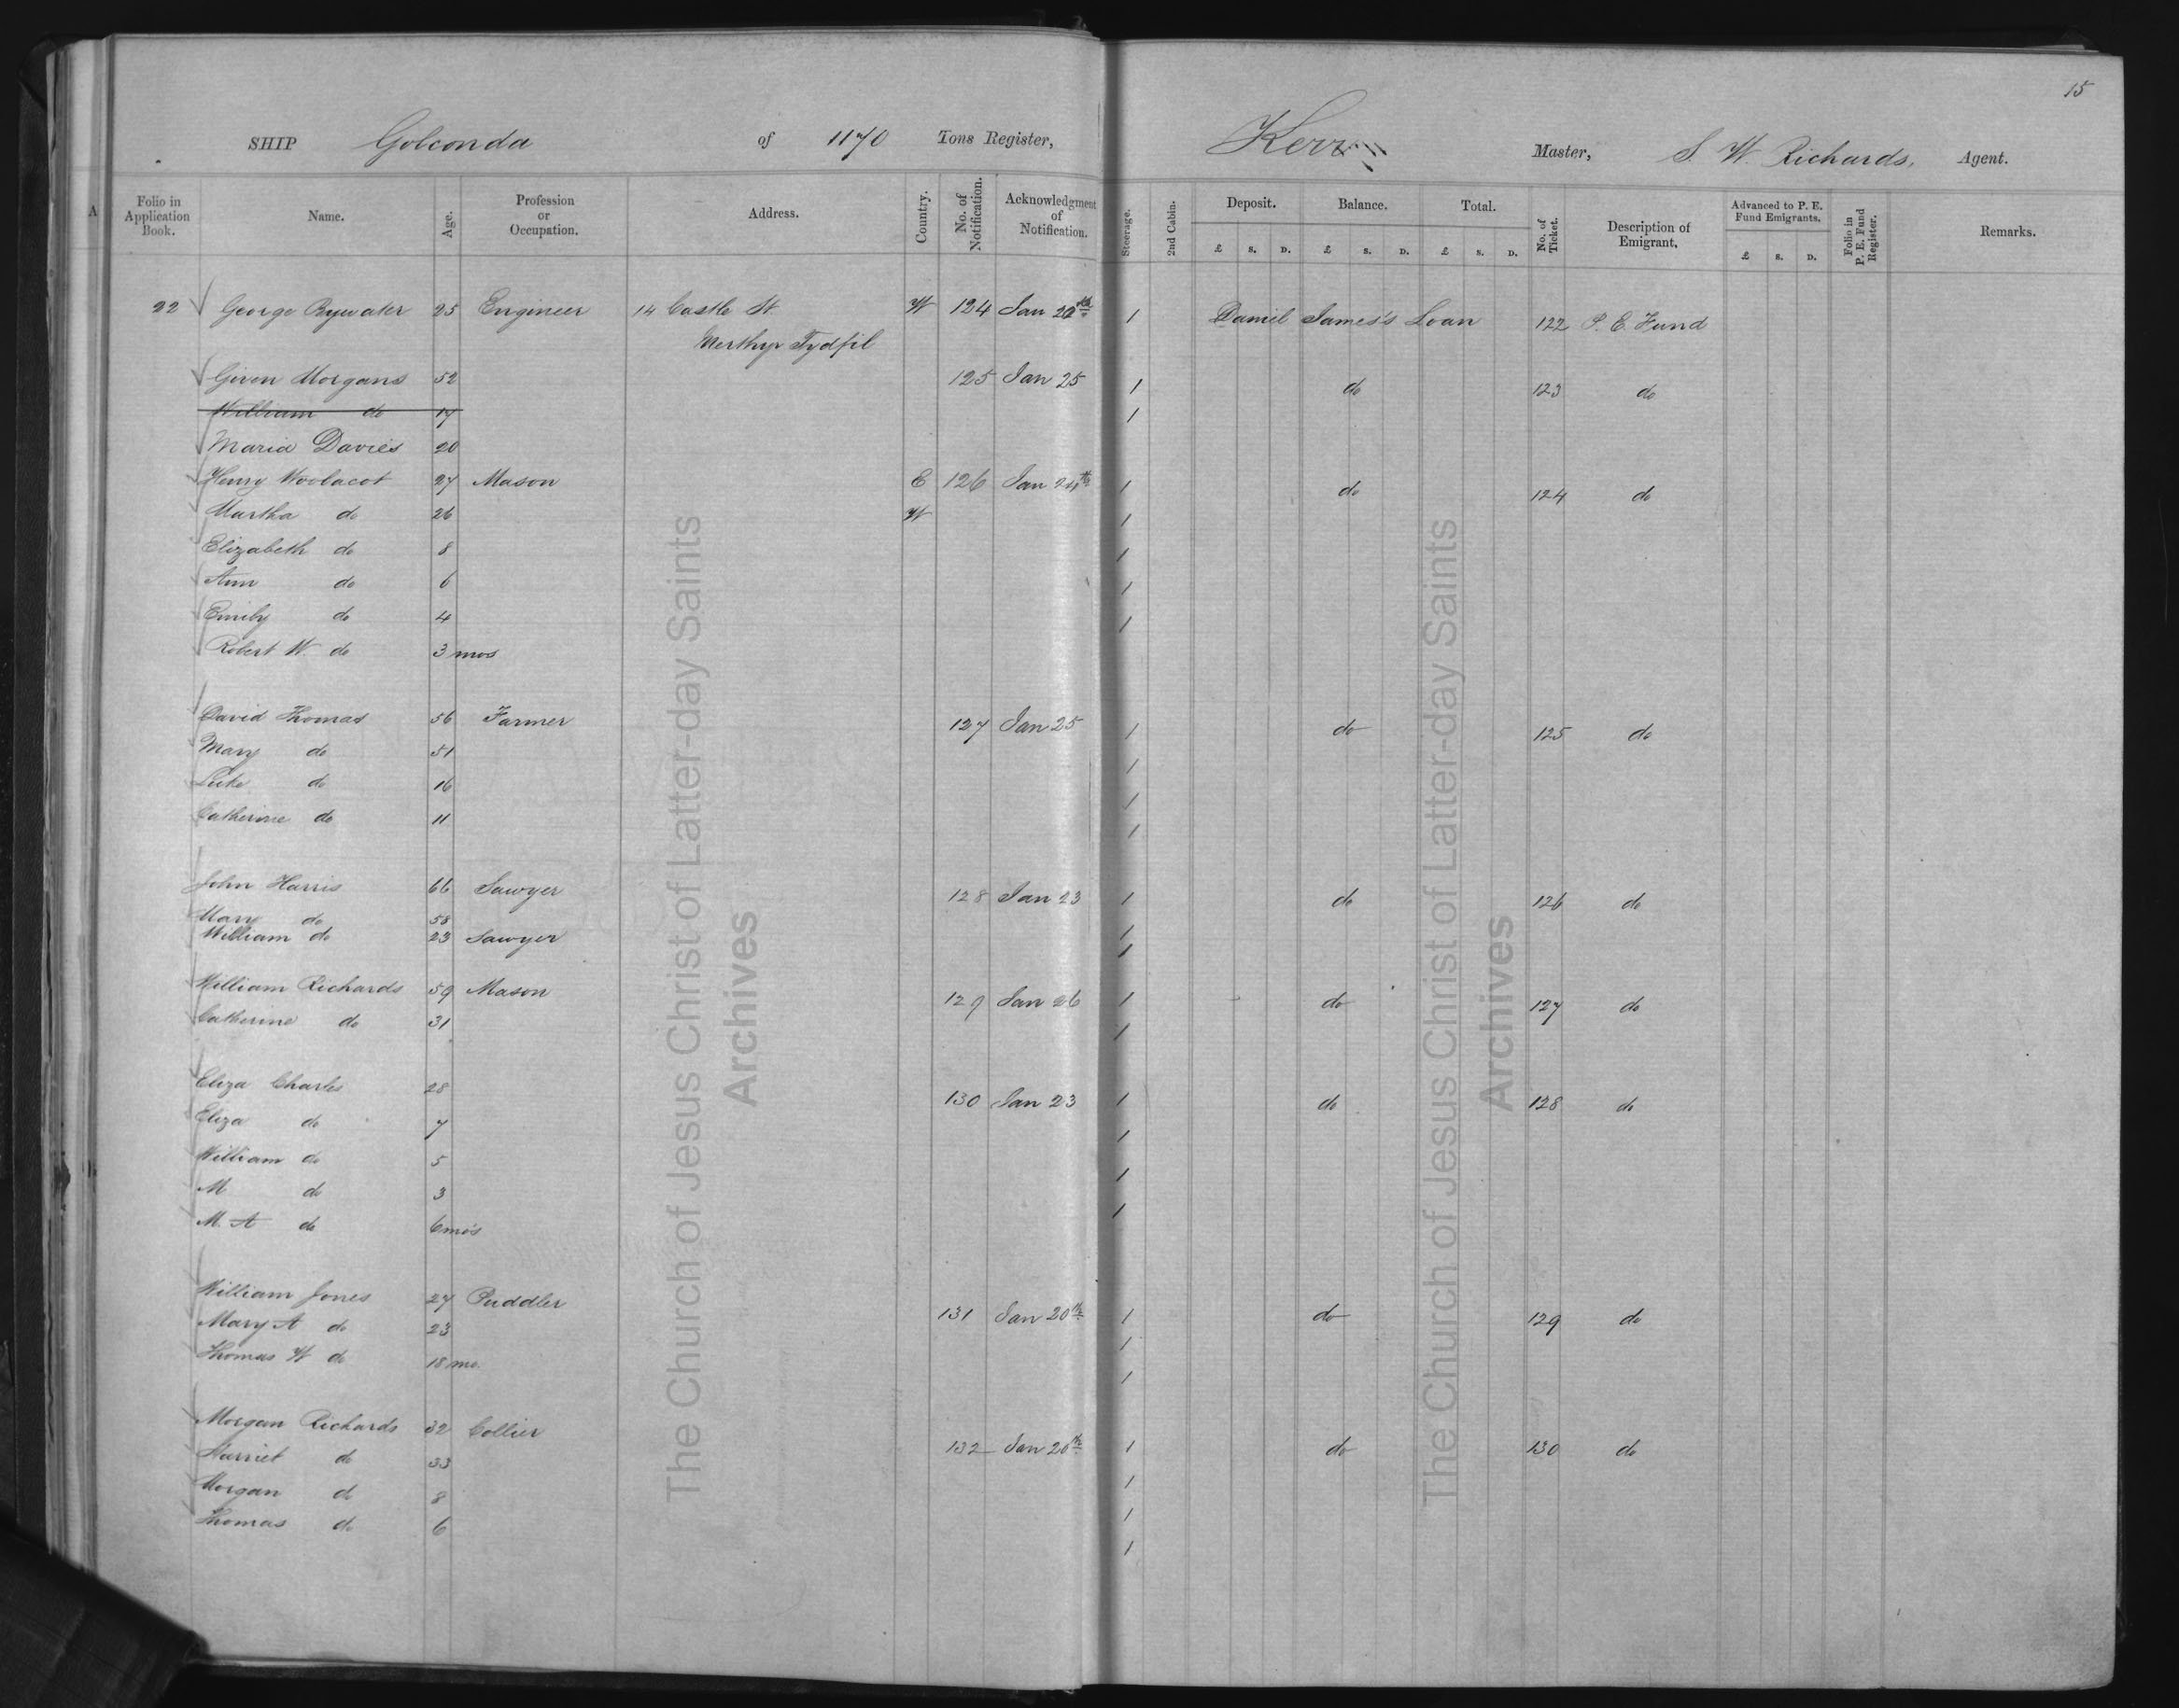 15
SHIP Golconda of 1170 Tons Register, Kerr Master, S. W. Richards, Agent.
A
Folio in Application Book. Name. Age. Profession or Occupation. Address. Country. No. of Notification. Acknowledgment of Notification. Steerage. 2nd Cabin. Deposit. Balance. Total. No. of Ticket. Description of Emigrant. Advanced to P. E. Fund Emigrants. Folio in P. E. Fund Register. Remarks.
£ S. D. £ S. D. £ S. D. £ S. D.
22 George Bywater 25 Engineer 14 Castle St W 124 Jan 1 Daniel James's Loan 122 P. E. Fund
Merthyr Tydfil
Morgans 52 125 Jan 25 1 do 123 do
William do 17 1
Maria Davies 20
Henry Woolacot 27 Mason E 126 Jan 24th 1 do 124 do
Martha do 26 W 1
Elizabeth do 8 1
Ann do 6 1
Emily do 4 1
Robert W. do 3 mos
David Thomas 56 Farmer 127 Jan 25 1 do 125 do
Mary do 51 1
Luke do 16 1
Catherine do 11 1
John Harris 66 Sawyer 128 Jan 23 1 do 126 do
Mary do 58 1
William do 23 Sawyer 1
William Richards 59 Mason 129 Jan 26 1 do 127 do
Catherine do 31 1
Eliza Charles 28 130 Jan 23 1 do 128 do
Eliza do 7 1
William do 5 1
M do 3 1
M. A do 6 mos
William Jones 27 Puddler 131 Jan 20th 1 do 129 do
Mary A do 23 1
Thomas W do 18 mo. 1
Morgan Richards 32 Collier 132 Jan 20th 1 do 130 do
Harriet do 33 1
Morgan do 8 1
Thomas do 6 1
The Church of Jesus Christ of Latter-day Saints
Archives
The Church of Jesus Christ of Latter-day Saints
Archives